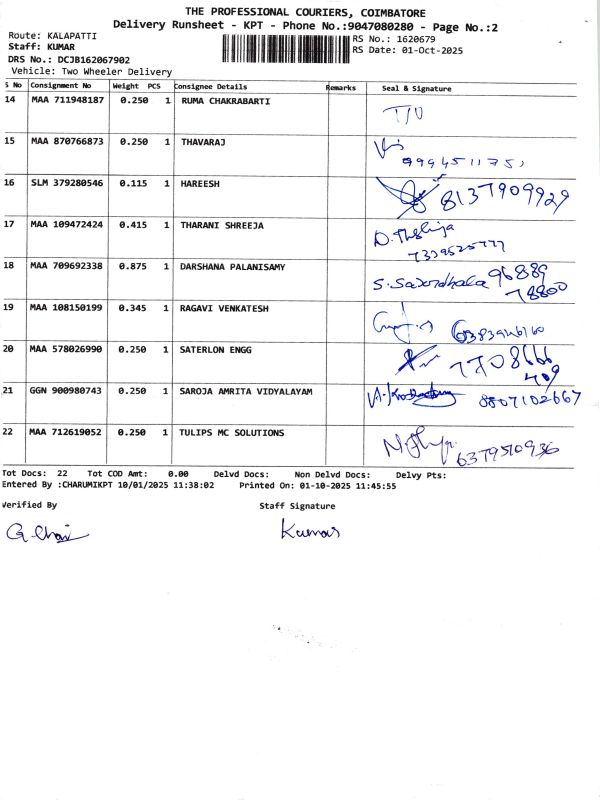 THE PROFESSIONAL COURIERS, COIMBATORE
Delivery Runsheet - KPT - Phone No.:9047080280 - Page No.:2
Route: KALAPATTI RS No.: 1620679
Staff: KUMAR RS Date: 01-Oct-2025
DRS No.: DCJB162067902
Vehicle: Two Wheeler Delivery
S No Consignment No Weight PCS Consignee Details Remarks Seal & Signature
14 MAA 711948187 0.250 1 RUMA CHAKRABARTI
15 MAA 870766873 0.250 1 THAVARAJ
16 SLM 379280546 0.115 1 HAREESH
8137909929
17 MAA 109472424 0.415 1 THARANI SHREEJA
18 MAA 709692338 0.875 1 DARSHANA PALANISAMY
96889
78800
19 MAA 108150199 0.345 1 RAGAVI VENKATESH
20 MAA 578026990 0.250 1 SATERLON ENGG
7708666
409
21 GGN 900980743 0.250 1 SAROJA AMRITA VIDYALAYAM
8807102667
22 MAA 712619052 0.250 1 TULIPS MC SOLUTIONS
6379510936
Tot Docs: 22 Tot COD Amt: 0.00 Delvd Docs: Non Delvd Docs: Delvy Pts:
Entered By :CHARUMIKPT 10/01/2025 11:38:02 Printed On: 01-10-2025 11:45:55
Verified By Staff Signature
Kumar